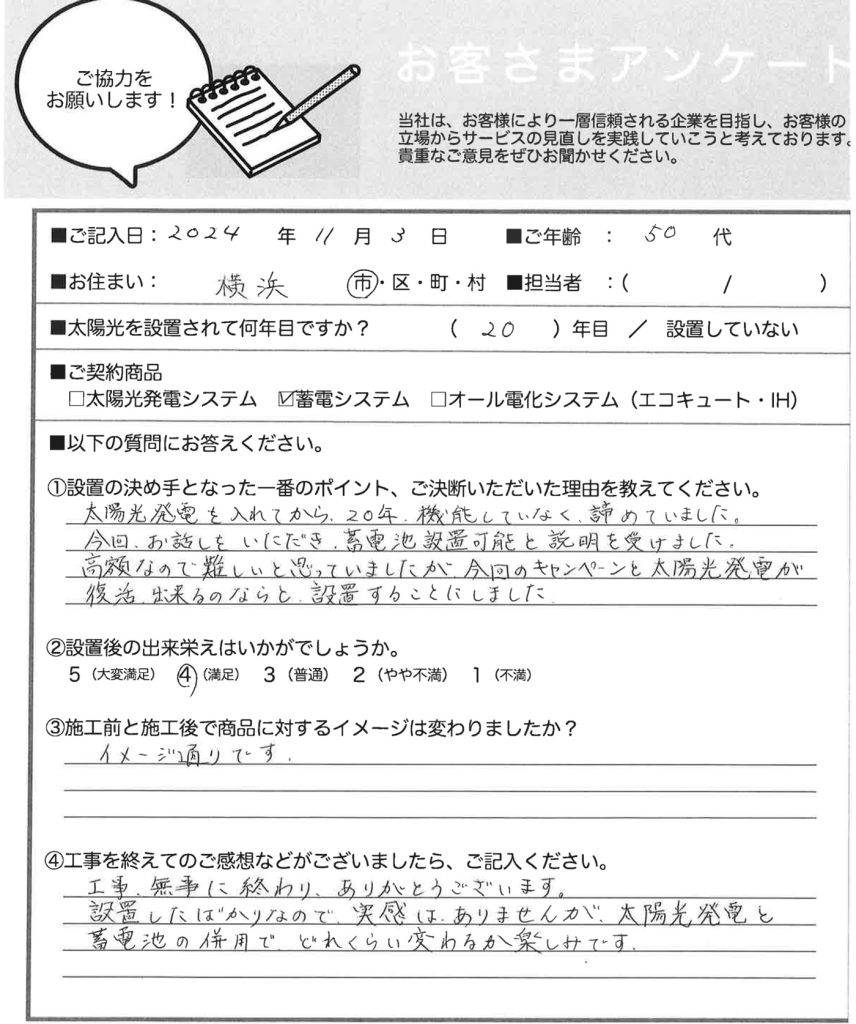 ご協力を
お願いします！
お客さまアンケート
当社は、お客様により一層信頼される企業を目指し、お客様の
立場からサービスの見直しを実践していこうと考えております。
貴重なご意見をぜひお聞かせください。
■ご記入日：2024 年 11 月 3 日 ■ご年齢 ： 50 代
■お住まい： 横浜 市・区・町・村 ■担当者 ：( / )
■太陽光を設置されて何年目ですか？ ( 20 ) 年目 / 設置していない
■ご契約商品
□太陽光発電システム ☑蓄電システム □オール電化システム（エコキュート・IH）
■以下の質問にお答えください。
①設置の決め手となった一番のポイント、ご決断いただいた理由を教えてください。
太陽光発電を入れてから、20年、機能していなく、諦めていました。
今回、お話しをいただき、蓄電池設置可能と説明を受けました。
高額なので難しいと思っていましたが、今回のキャンペーンと太陽光発電が
復活、出来るのならと、設置することにしました
②設置後の出来栄えはいかがでしょうか。
5（大変満足） ④（満足） 3（普通） 2（やや不満） 1（不満）
③施工前と施工後で商品に対するイメージは変わりましたか？
イメージ通りです.
④工事を終えてのご感想などがございましたら、ご記入ください。
工事、無事に終わり、ありがとうございます。
設置したばかりなので、実感は、ありませんが、太陽光発電と
蓄電池の併用で、どれくらい変わるか楽しみです.